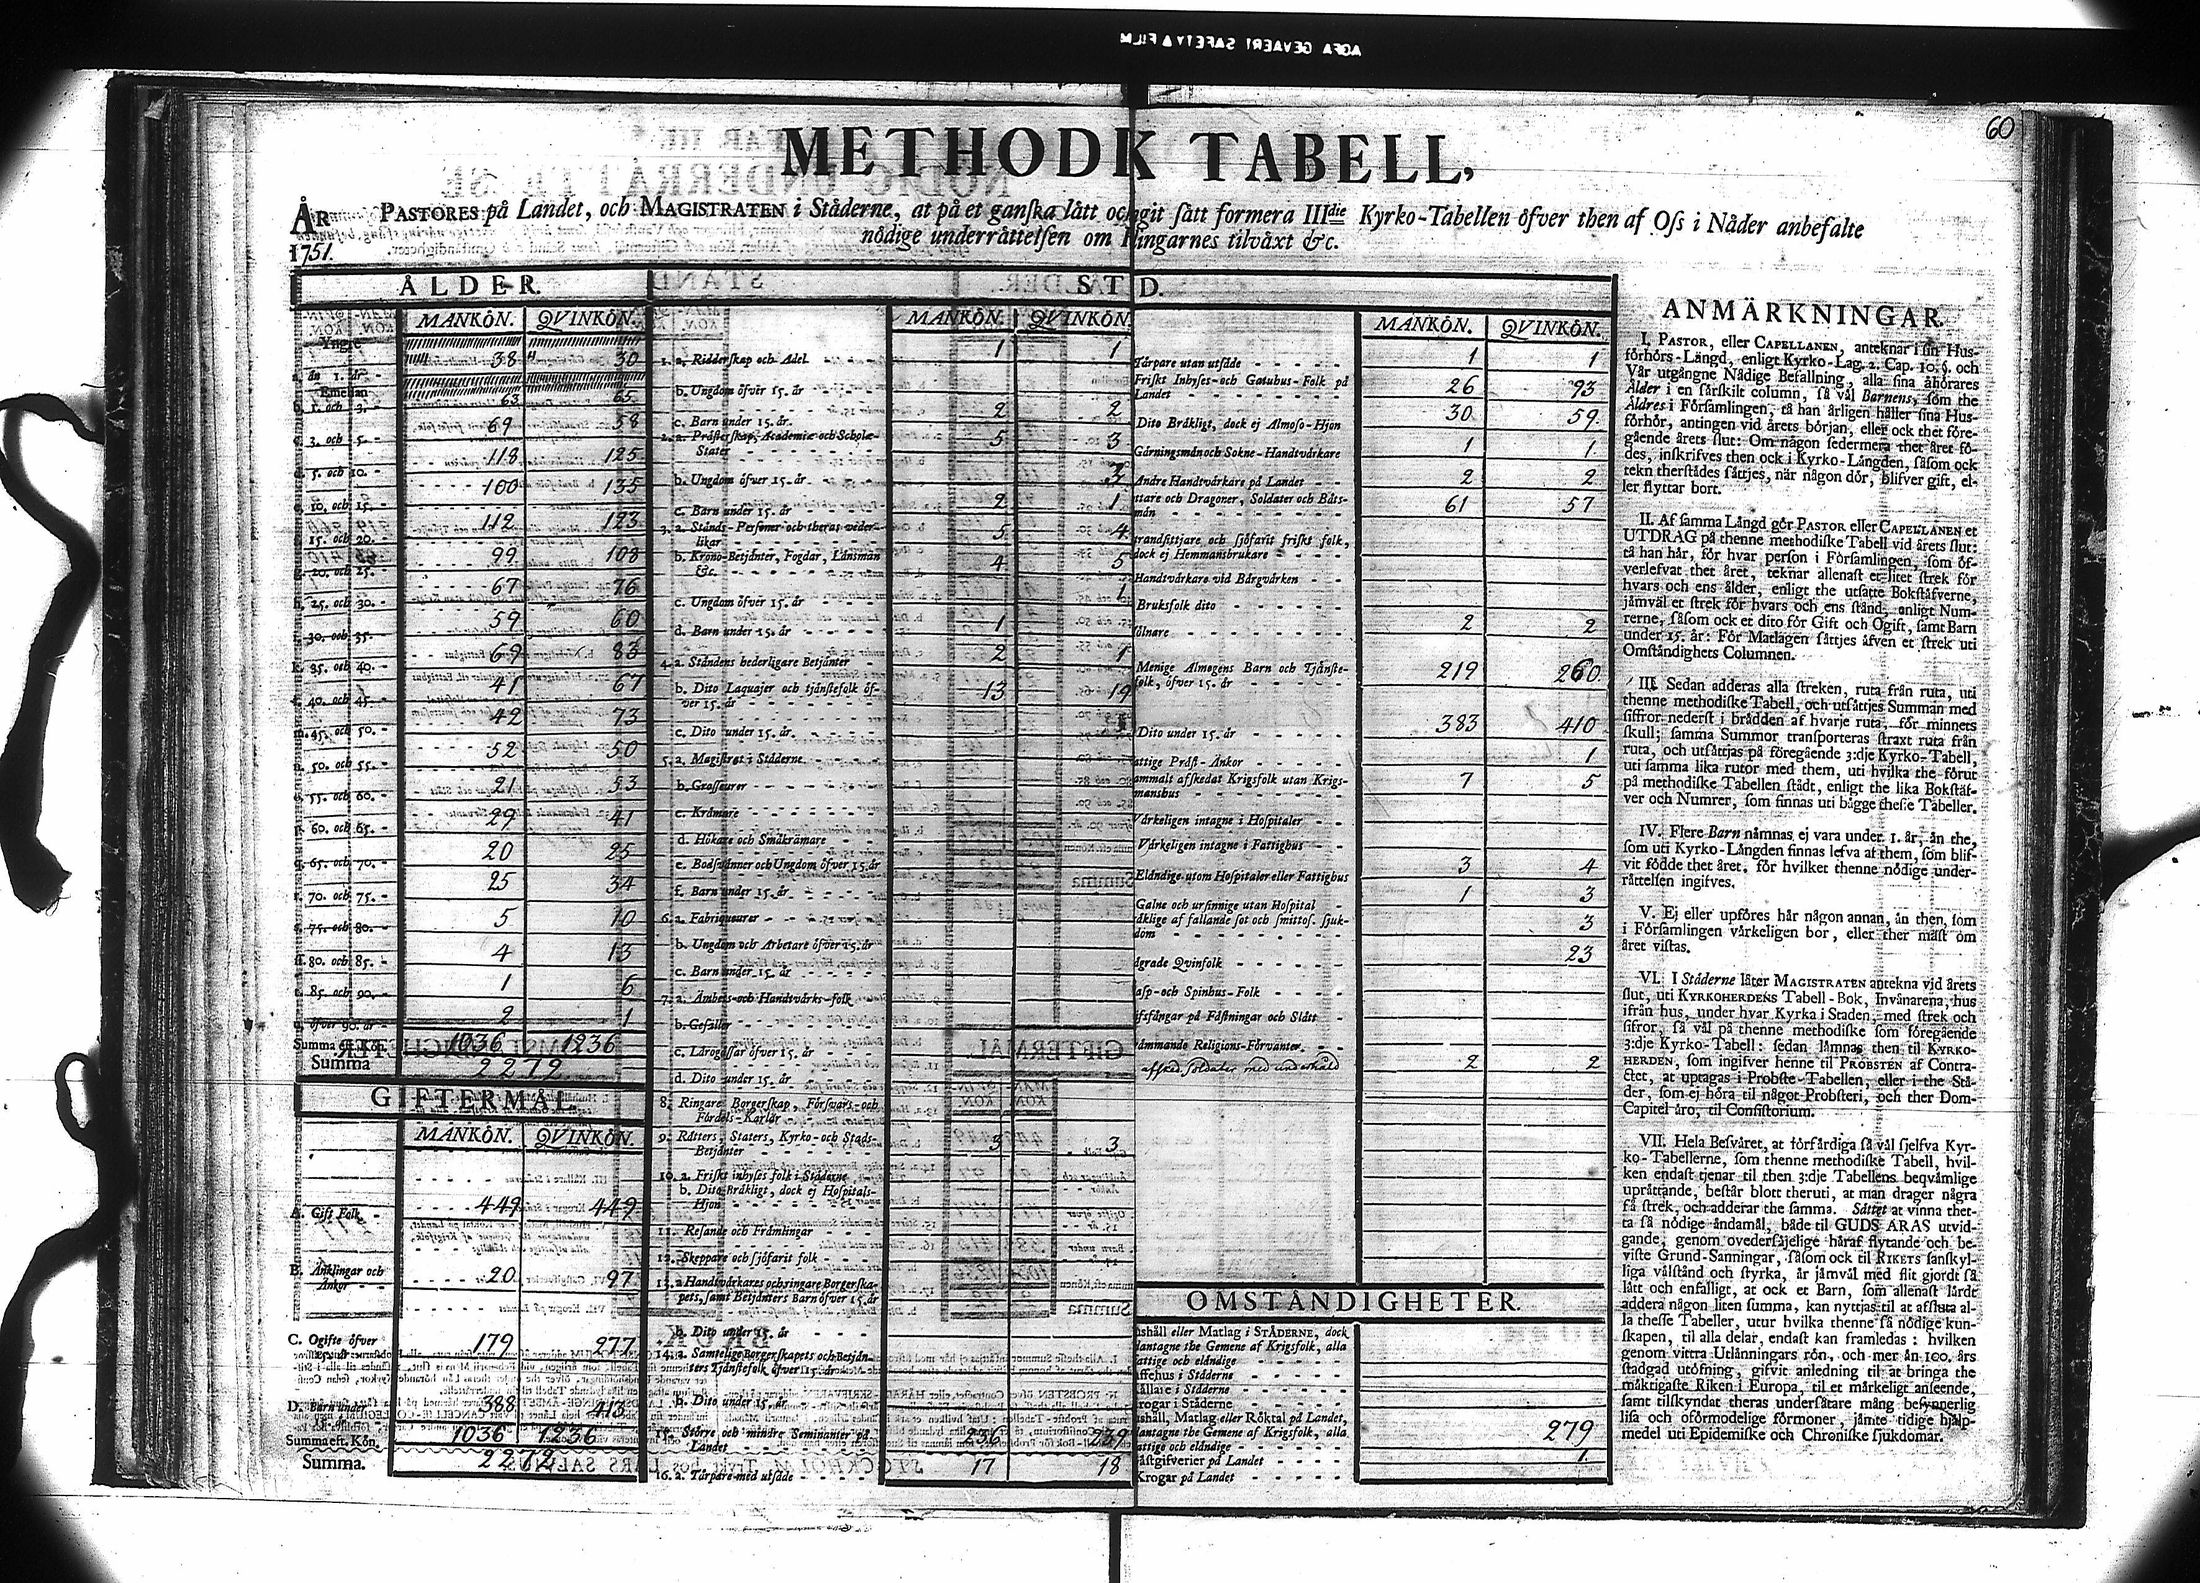 AGFA GEVAERT SAFETY ▲ FILM
60
METHODK TABELL,
ÅR PASTORES på Landet, och MAGISTRATEN i Ståderne, at på et ganska lått och git sått formera IIIdie Kyrko-Tabellen öfver then af Oss i Nåder anbefalte
1751. nödige underråttelsen om ingarnes tilvåxt &c.
ÅLDER.
MANKÖN. QVINKÖN.
Yngre
än 1. år - 38 30
Emellan
b. 1. och 3. - 63 65
c. 3. och 5. - 69 58
d. 5. och 10. - 118 125
e. 10. och 15. 100 135
f. 15. och 20. 112 123
g. 20. och 25. 99 108
h. 25. och 30. - 67 76
i. 30. och 35. 59 60
k. 35. och 40. - 69 83
l. 40. och 45. 41 67
m. 45. och 50. - 42 73
n. 50. och 55. - 52 50
o. 55. och 60. - 21 53
p. 60. och 65. - 29 41
q. 65. och 70. - 20 25
r. 70. och 75. - 25 34
s. 75. och 80. - 5 10
ß. 80. och 85. - 4 13
t. 85. och 90. - 1 6
u. öfver 90. år - 2 1
Summa eft. Kön. 1036 1236
Summa 2272
GIFTERMÅL.
MANKÖN. QVINKÖN.
A. Gift Folk - 449 449
B. Änklingar och
Änkor - 20 97
C. Ogifte öfver
15. år - 179 277
D. Barn under
15. år - 388 413
Summa eft. Kön. 1036 1236
Summa. 2272
ST D.
MANKÖN. QVINKÖN.
1. a. Ridderskap och Adel 1 1
b. Ungdom öfver 15. år
c. Barn under 15. år. 2 2
2. a. Pråsterskap, Academiæ och Scholæ-
Stater 5 3
b. Ungdom öfver 15. år 3
c. Barn under 15. år 2 1
3. a. Stånds-Personer och theras veder-
likar 5 4
b. Krono-Betjånter, Fogdar, Lånsmån
&c. 4 5
c. Ungdom öfver 15. år 1
d. Barn under 15. år 1
4. a. Ståndens hederligare Betjånter 2 1
b. Dito Laquajer och tjånstefolk öf-
ver 15. år 13 19
c. Dito under 15. år. 1
5. a. Magistrat i Ståderne
b. Grosseurer
c. Kråmare
d. Hökare och Småkråmare
e. Bodsvänner och Ungdom öfver 15. år
f. Barn under 15. år
6. a. Fabriqueurer
b. Ungdom och Arbetare öfver 15. år
c. Barn under 15. år
7. a. Åmbets- och Handtvårks-folk
b. Gesåller
c. Lårogossar öfver 15. år
d. Dito under 15. år
8. Ringare Borgerskap, Försvars- och
Fördels-Karlar
9. Råtters, Staters, Kyrko- och Stads-
Betjånter 3 3
10. a. Friskt inhyses folk i Ståderne
b. Dito Bråkligt, dock ej Hospitals-
Hjon
11. Resande och Fråmlingar
12. Skeppare och sjöfarit folk
13. a. Handtvårkares och ringare Borgerska-
pets, samt Betjånters Barn öfver 15. år
b. Dito under 15. år
14. a. Samtelige Borgerskapets och Betjån-
ters Tjånstefolk öfver 15. år
b. Dito under 15. år
15. Större och mindre Seminanter på
Landet 236 239
16. a. Torpare med utsåde 17 18
MANKÖN. QVINKÖN.
Torpare utan utsåde 1 1
Friskt Inhyses- och Gatuhus-Folk på
Landet 26 93
Dito Bråkligt, dock ej Almoso-Hjon 30 59
Gårningsmån och Sokne-Handtvårkare 1 1
Andre Handtvårkare på Landet 2 2
ttare och Dragoner, Soldater och Båts-
mån 61 57
trandsittjare och sjöfarit friskt folk,
dock ej Hemmansbrukare
Handtvårkare vid Bårgvårken
Bruksfolk dito
ölnare 2 2
Menige Almogens Barn och Tjånste-
folk, öfver 15. år 219 260
Dito under 15. år 383 410
attige Pråst-Änkor 1
ammalt afskedat Krigsfolk utan Krigs-
manshus 7 5
Vårkeligen intagne i Hospitaler
Vårkeligen intagne i Fattighus
Elåndige utom Hospitaler eller Fattighus 3 4
Galne och ursinnige utan Hospital 1 3
åklige af fallande sot och smittos. sjuk-
dom 3
dgrade Qvinfolk 23
asp- och Spinhus-Folk
ifsfångar på Fåstningar och Slått
åmmande Religions-Förvanter
afsked. soldater med underhåld 2 2
OMSTÅNDIGHETER.
ushåll eller Matlag i STÅDERNE, dock
dantagne the Gemene af Krigsfolk, alla
attige och elåndige
affehus i Ståderne
ållare i Ståderne
rogar i Ståderne
ushåll, Matlag eller Röktal på Landet,
dantagne the Gemene af Krigsfolk, alla
attige och elåndige 279
åstgifverier på Landet 1
Krogar på Landet
ANMÄRKNINGAR.
I. PASTOR, eller CAPELLANEN, anteknar i sin Hus-
förhörs-Långd, enligt Kyrko-Lag. 2. Cap. 10. §. och
Vår utgångne Nådige Befallning, alla sina åhörares
Ålder i en sårskilt column, så vål Barnens, som the
Åldres i Församlingen, tå han årligen håller sina Hus-
förhör, antingen vid årets början, eller ock thet före-
gående årets slut: Om någon sedermera thet året fö-
des, inskrifves then ock i Kyrko-Långden, såsom ock
tekn therstådes såttjes, når någon dör, blifver gift, el-
ler flyttar bort.
II. Af samma Långd gör PASTOR eller CAPELLANEN et
UTDRAG på thenne methodiske Tabell vid årets slut:
tå han hår, för hvar person i Församlingen, som öf-
verlefvat thet året, teknar allenast et litet strek för
hvars och ens ålder, enligt the utsatte Bokståfverne,
jåmvål et strek för hvars och ens stånd, enligt Num-
rerne, såsom ock et dito för Gift och Ogift, samt Barn
under 15. år: För Matlagen såttjes åfven et strek uti
Omståndighets Columnen.
III. Sedan adderas alla streken, ruta från ruta, uti
thenne methodiske Tabell, och utsåttjes Summan med
siffror nederst i brådden af hvarje ruta, för minnets
skull; samma Summor transporteras straxt ruta från
ruta, och utsåttjas på föregående 3:dje Kyrko-Tabell,
uti samma lika rutor med them, uti hvilka the förut
på methodiske Tabellen stådt, enligt the lika Bokståf-
ver och Numrer, som finnas uti bågge thesse Tabeller.
IV. Flere Barn nåmnas ej vara under 1. år, ån the,
som uti Kyrko-Långden finnas lefva af them, som blif-
vit födde thet året, för hvilket thenne nödige under-
råttelsen ingifves.
V. Ej eller upföres hår någon annan, ån then, som
i Församlingen vårkeligen bor, eller ther måst om
året vistas.
VI. I Ståderne låter MAGISTRATEN antekna vid årets
slut, uti KYRKOHERDENS Tabell-Bok, Invånarena, hus
ifrån hus, under hvar Kyrka i Staden, med strek och
sifror, så vål på thenne methodiske som föregående
3:dje Kyrko-Tabell: sedan låmnas then til KYRKO-
HERDEN, som ingifver henne til PROBSTEN af Contra-
ctet, at uptagas i Probste-Tabellen, eller i the Stå-
der, som ej höra til något Probsteri, och ther Dom-
Capitel åro, til Consistorium.
VII. Hela Besvåret, at förfårdiga så vål sjelfva Kyr-
ko-Tabellerne, som thenne methodiske Tabell, hvil-
ken endast tjenar til then 3:dje Tabellens beqvåmlige
upråttande, består blott theruti, at man drager några
få strek, och adderar the samma. Såttet at vinna thet-
ta så nödige åndamål, både til GUDS ÅRAS utvid-
gande, genom ovedersåjelige håraf flytande och be-
viste Grund-Sanningar, såsom ock til RIKETS sanskyl-
liga vålstånd och styrka, år jåmvål med flit gjordt så
lått och enfalligt, at ock et Barn, som allenast lårdt
addera någon liten summa, kan nyttjas til at afsluta al-
la thesse Tabeller, utur hvilka thenne så nödige kun-
skapen, til alla delar, endast kan framledas: hvilken
genom vittra Utlånningars rön, och mer ån 100. års
stadgad utöfning, gifvit anledning til at bringa the
måktigaste Riken i Europa, til et mårkeligt anseende,
samt tilskyndat theras undersåtare mång besynnerlig
lisa och oförmodelige förmoner, jåmte tidige hjålp-
medel uti Epidemiske och Chroniske sjukdomar.